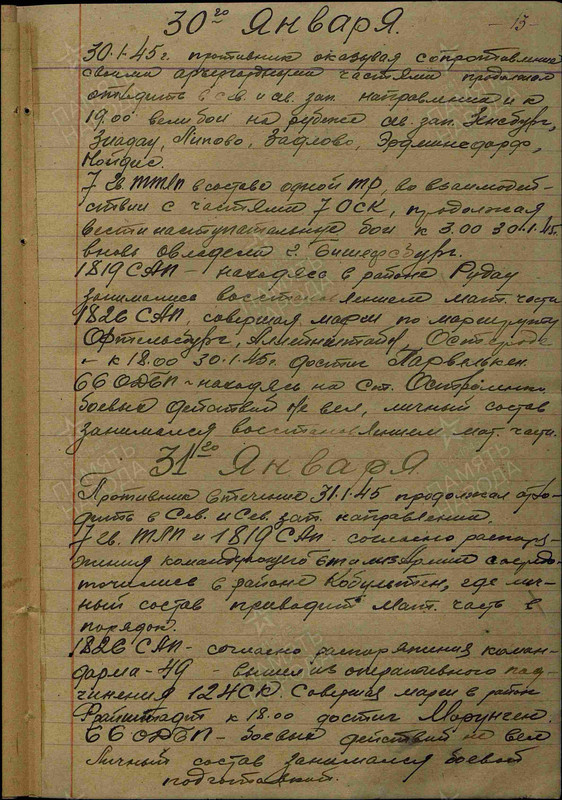 - 13 -
30го Января.
30.1.45г. противник оказывая сопротивление
своими арьергардными частями продолжал
отходить в сев. и св. зап. направлении и к
19.00 вели бой на рубеже св. зап. Энсбург,
Липово, Вафлово, Эрдмансдорф,
7 гв ттпп в составе одной тр, во взаимодей-
ствии с частями 7 ОСК, продолжая
вести наступательные бои к 3.00 30.1.45г.
вновь овладели г. Бишефсбург.
1819 САП - находясь в районе Рудау
занимался восстановлением мат. части
1826 САП, совершая марш по маршруту
Ортельсбург, Алленштайн, Остероде
- к 18.00 30.1.45г. достиг
66 ОДБП - находясь на ст. Остроленка
боевых действий не вел, личный состав
занимался восстановлением мат. части.
31го Января
Противник в течении 31.1.45 продолжал отхо-
дить в Сев. и Сев. зап. направлении.
7 гв. ТПП и 1819 САП - согласно распоря-
жения командующего БТ и МВ Армии сосредо-
точились в районе Кобультен, где лич-
ный состав приводит мат. часть в
порядок.
1826 САП - согласно распоряжения коман-
дарма - 49 - вышел из оперативного под-
чинения 124 СК. Совершая марш в район
к 18.00 достиг
66 ОДБП - боевых действий не вел
Личный состав занимался боевой
подготовкой.
ПАМЯТЬ НАРОДА